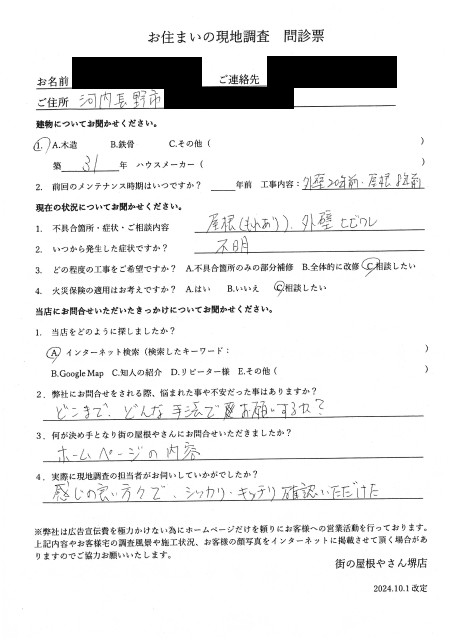 お住まいの現地調査　問診票
お名前　ご連絡先
ご住所　河内長野市
建物についてお聞かせください。
1. A.木造　B.鉄骨　C.その他（　）
築　31　年　ハウスメーカー（　）
2. 前回のメンテナンス時期はいつですか？　年前　工事内容：外壁20年前・屋根8年前
現在の状況についてお聞かせください。
1. 不具合箇所・症状・ご相談内容　屋根(もれあり)、外壁ヒビワレ
2. いつから発生した症状ですか？　不明
3. どの程度の工事をご希望ですか？ A.不具合箇所のみの部分補修　B.全体的に改修　C相談したい
4. 火災保険の適用はお考えですか？ A.はい　B.いいえ　C相談したい
当店にお問合せいただいたきっかけについてお聞かせください。
1. 当店をどのように探しましたか？
A インターネット検索（検索したキーワード：　）
B.Google Map　C.知人の紹介　D.リピーター様　E.その他（　）
2．弊社にお問合せをされる際、悩まれた事や不安だった事はありますか？
どこまで、どんな手法でお願いするか？
3．何が決め手となり街の屋根やさんにお問合せいただきましたか？
ホームページの内容
4．実際に現地調査の担当者がお伺いしていかがでしたか？
感じの良い方々で、シッカリ・キッチリ確認いただけた
※弊社は広告宣伝費を極力かけない為にホームページだけを頼りにお客様への営業活動を行っております。
上記内容やお客様宅の調査風景や施工状況、お客様の顔写真をインターネットに掲載させて頂く場合があ
りますのでご協力お願いいたします。
街の屋根やさん堺店
2024.10.1 改定